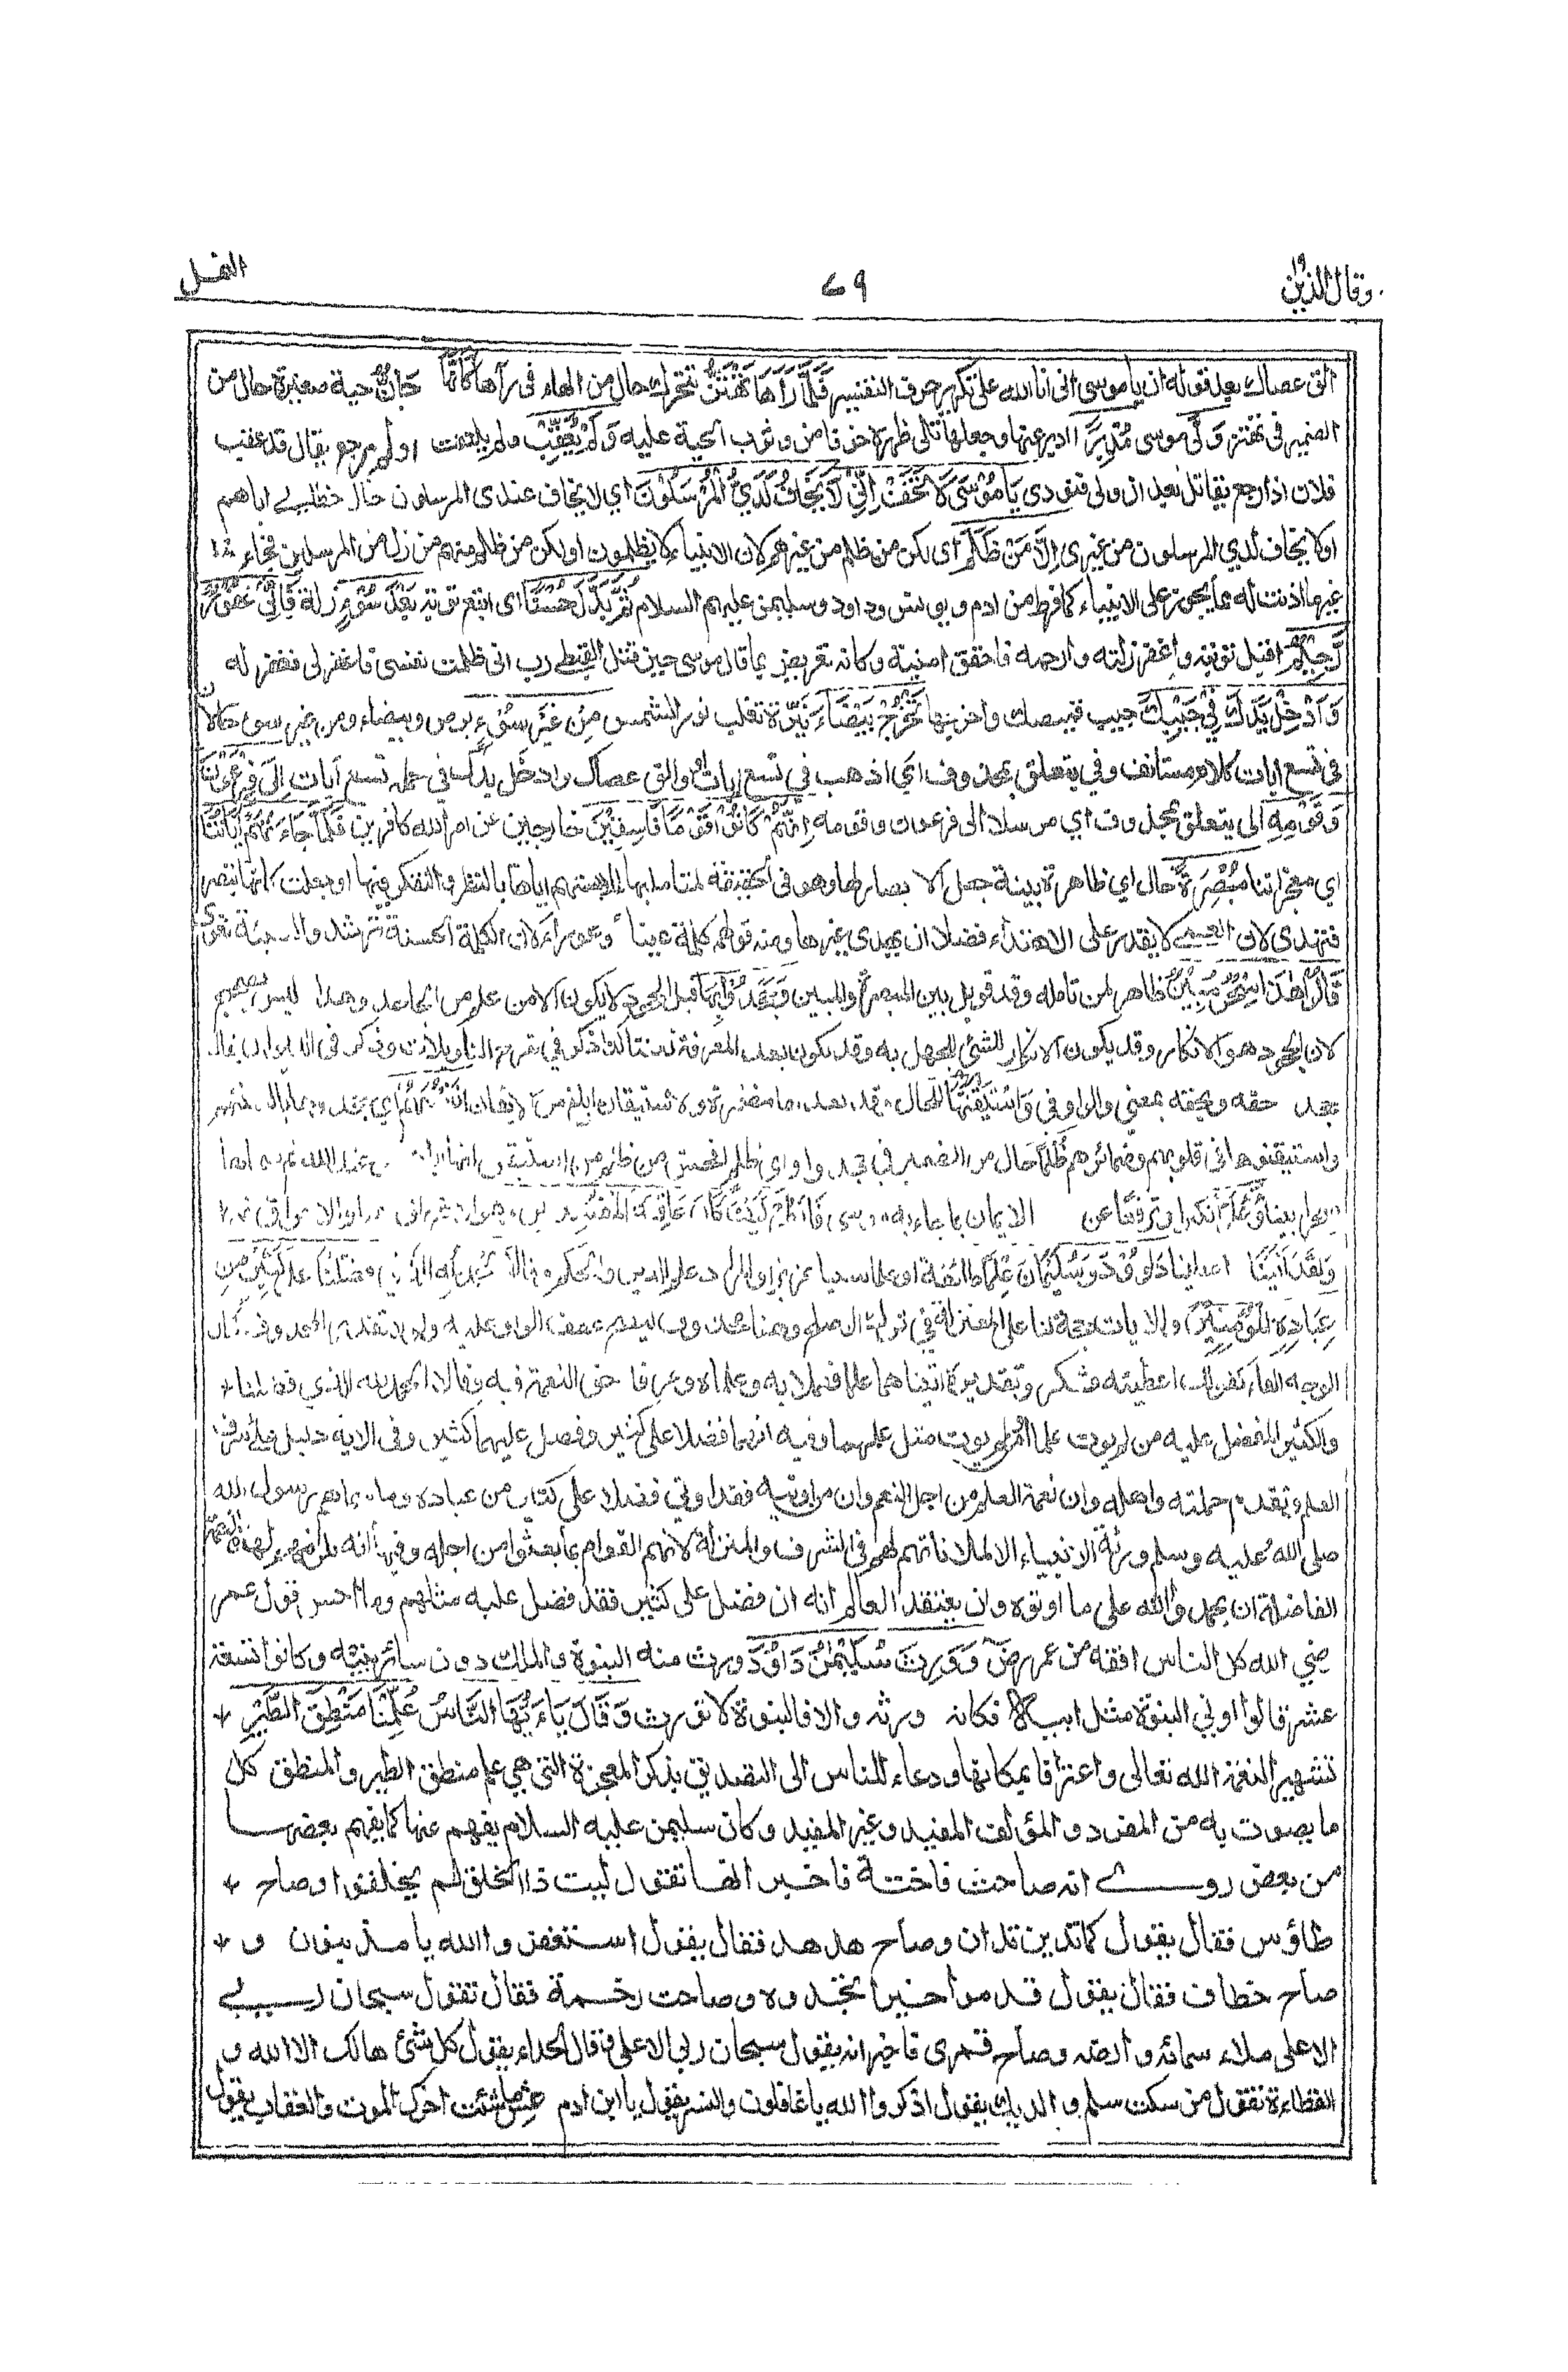 وقال الذين ١٩
٦٩
النمل
الق عصاك بعد قوله ان يا موسى اني انا الله على تكرير حرف التفسير فَلَمَّا رَآهَا تَهْتَزُّ تتحرك حال من الهاء في رآها كَاَنَّهَا جَانٌّ حية صغيرة حال من
الضمير في تهتز وَلّٰى موسى مُدْبِرًا ادبر عنها وجعلها تلي ظهره خوفا من وثوب الحية عليه وَلَمْ يُعَقِّبْ ولم يلتفت او لم يرجع يقال قد عقب
فلان اذا رجع يقاتل بعد ان ولى فنودي يَا مُوْسٰى لَا تَخَفْ اِنِّيْ لَا يَخَافُ لَدَيَّ الْمُرْسَلُوْنَ اي لا يخاف عندي المرسلون حال خطابي اياهم
او لا يخاف لدي المرسلون من غيري اِلَّا مَنْ ظَلَمَ اى لكن من ظلم من غيرهم لان الانبياء لا يظلمون او لكن من ظلم منهم من زل من المرسلين فجاء
غير ما اذنت له مما يجوز على الانبياء كما فرط من ادم ويونس وداود وسليمن عليهم السلام ثُمَّ بَدَّلَ حُسْنًا اى اتبع توبة بَعْدَ سُوْءٍ زلة فَاِنِّيْ غَفُوْرٌ
رَّحِيْمٌ اقبل توبته واغفر زلته وارحمه فاحقق امنيته وكانه تعريض بما قال موسى حين قتل القبطي رب اني ظلمت نفسى فاغفر لى فغفر له
وَاَدْخِلْ يَدَكَ فِيْ جَيْبِكَ جيب قميصك واخرجها تَخْرُجْ بَيْضَاءَ نيرة تغلب نور الشمس مِنْ غَيْرِ سُوْءٍ برص وبيضاء ومن غير سوء حالان
فِيْ تِسْعِ اٰيَاتٍ كلام مستانف وفي يتعلق بمحذوف اي اذهب في تسع ايات او والق عصاك وادخل يدك في جملة تسع آيات اِلٰى فِرْعَوْنَ
وَقَوْمِهٖ الى يتعلق بمحذوف اي مرسلا الى فرعون وقومه اِنَّهُمْ كَانُوْا قَوْمًا فَاسِقِيْنَ خارجين عن امر الله كافرين فَلَمَّا جَاءَتْهُمْ اٰيَاتُنَا
اي معجزاتنا مُبْصِرَةً حال اي ظاهرة بينة جعل الابصار لها وهو في الحقيقة لمتامليها لملابستهم اياها بالنظر والتفكر فيها او جعلت كانها تبصر
فتهدي لان العمى لا يقدر على الاهتداء فضلا ان يهدي غيرها ومنه قولهم كلمة عيناء وعوراء لان الكلمة الحسنة ترشد والسيئة تغوى
قَالُوْا هٰذَا سِحْرٌ مُّبِيْنٌ ظاهر لمن تامله وقد قوبل بين المبصرة والمبين وَجَحَدُوْا بِهَا قيل الجحود لا يكون الا من علم من الجاحد وهذا ليس بصحيح
لان الجحود هو الانكار وقد يكون الانكار للشئ للجهل به وقد يكون بعد المعرفة تعنتا كذا ذكر في شرح التاويلات وذكر في الديوان يقال
جحد حقه وبحقه بمعنى والواو في وَاسْتَيْقَنَتْهَا للحال وقد بعدها مضمرة والاستيقان ابلغ من الايقان اَنْفُسُهُمْ اي جحدوها بالسنتهم
واستيقنوها في قلوبهم وضمائرهم ظُلْمًا حال من الضمير في جحدوا واي ظلم افحش من ظلم من استيقن انها ايات من عند الله ثم سماها
سحرا بينا وَّعُلُوًّا تكبرا وترفعا عن الايمان بما جاء به موسى فَانْظُرْ كَيْفَ كَانَ عَاقِبَةُ الْمُفْسِدِيْنَ وهو الاغراق
وَلَقَدْ اٰتَيْنَا اعطينا دَاوٗدَ وَسُلَيْمَانَ عِلْمًا طائفة او علما سنيا غزيرا والمراد علم الدين والحكم وَقَالَا الْحَمْدُ لِلّٰهِ الَّذِيْ فَضَّلَنَا عَلٰى كَثِيْرٍ مِّنْ
عِبَادِهِ الْمُؤْمِنِيْنَ والايات حجة لنا على المعتزلة في ترك الاصلح وهنا محذوف ليصح عطف الواو عليه ولولا تقدير المحذوف لكان
الوجه الفاء كقولك اعطيته فشكر وتقديره آتيناهما علما فعملا به وعلماه وعرفا حق النعمة فيه وقالا الحمد لله الذي فضلنا
والكثير المفضل عليه من لم يؤت علما او من لم يؤت مثل علمهما وفيه انهما فضلا على كثير وفضل عليهما كثير وفي الاية دليل على شرف
العلم وتقدم حملته واهله وان نعمة العلم من اجل النعم وان من اوتيه فقد اوتي فضلا على كثير من عباده وما سماهم رسول الله
صلى الله عليه وسلم ورثة الانبياء الا لمداناتهم لهم في الشرف والمنزلة لانهم القوام بما بعثوا من اجله وفيها انه يلزمهم لهذه النعمة
الفاضلة ان يحمدوا الله على ما اوتوه وان يعتقد العالم انه ان فضل على كثير فقد فضل عليه مثلهم وما احسن قول عمر
رضي الله كل الناس افقه من عمر رض وَوَرِثَ سُلَيْمٰنُ دَاوٗدَ ورث منه النبوة والملك دون سائر بنيه وكانوا تسعة
عشر قالوا اوتي النبوة مثل ابيه فكانه ورثه والا فالنبوة لا تورث وَقَالَ يَاءَيُّهَا النَّاسُ عُلِّمْنَا مَنْطِقَ الطَّيْرِ
تشهيرا لنعمة الله تعالى واعترافا بمكانها ودعاء للناس الى التصديق بذكر المعجزة التي هي علم منطق الطير والمنطق كل
ما يصوت به من المفرد والمؤلف المفيد وغير المفيد وكان سليمن عليه السلام يفهم عنها كما يفهم بعضها
من بعض روي انه صاحت فاختة فاخبر انها تقول ليت ذا الخلق لم يخلقوا وصاح
طاؤس فقال يقول كما تدين تدان وصاح هدهد فقال يقول استغفروا الله يا مذنبون و
صاح خطاف فقال يقول قدموا خيرا تجدوه وصاحت رخمة فقال تقول سبحان ربي
الاعلى ملاء سمائه وارضه وصاح قمرى فاخبر انه يقول سبحان ربي الاعلى وقال الحداء يقول كل شئ هالك الا الله و
القطاءة تقول من سكت سلم والديك يقول اذكروا الله يا غافلون والنسر يقول يا ابن ادم عش ما شئت اخرك الموت والعقاب يقول